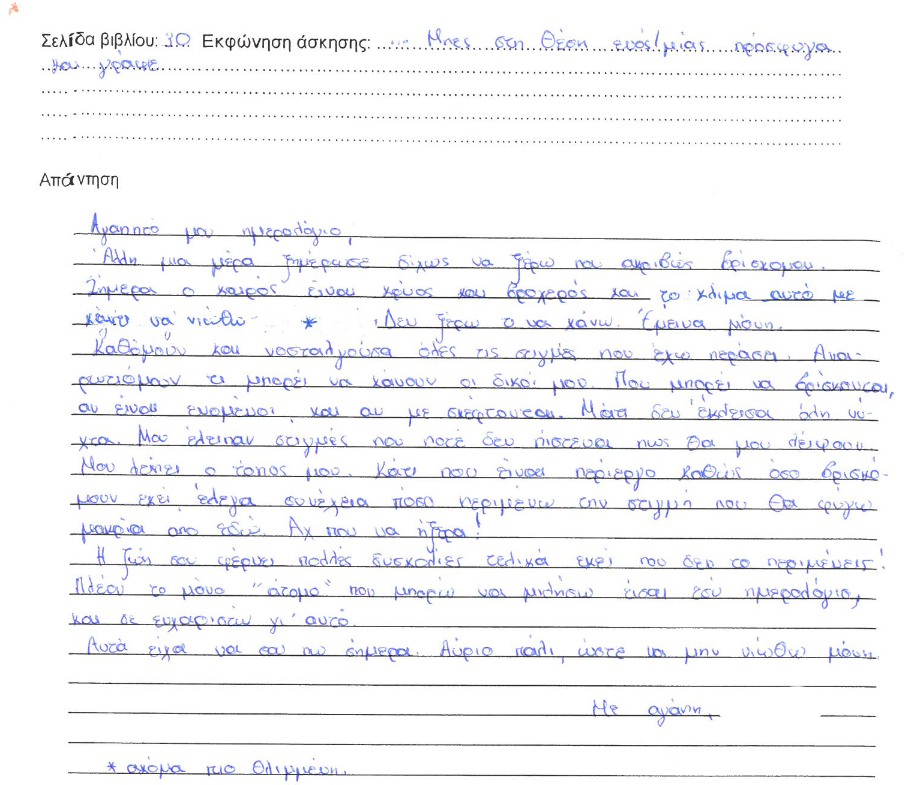 *
Σελίδα βιβλίου: 30 Εκφώνηση άσκησης: ... Μπες στη θέση ενός/μίας πρόσφυγα
και γράψε
Απάντηση
Αγαπητό μου ημερολόγιο,
Άλλη μια μέρα ξημέρωσε δίχως να ξέρω που ακριβώς βρίσκομαι.
Σήμερα ο καιρός είναι κρύος και βροχερός και το κλίμα αυτό με
κάνει να νιώθω * . Δεν ξέρω τι να κάνω. Έμεινα μόνη.
Καθόμουν και νοσταλγούσα όλες τις στιγμές που έχω περάσει. Ανα-
ρωτιόμουν τι μπορεί να κάνουν οι δικοί μου. Που μπορεί να βρίσκονται,
αν είναι ενωμένοι και αν με σκέφτονται. Μάτι δεν έκλεισα όλη νύ-
χτα. Μου έλειπαν στιγμές που ποτέ δεν πίστευα πως θα μου λείψουν.
Μου λείπει ο τόπος μου. Κάτι που είναι περίεργο καθώς όσο βρισκό-
μουν εκεί έλεγα συνέχεια πόσο περιμένω την στιγμή που θα φύγω
μακρία απο εδώ. Αχ που να ήξερα!
Η ζωή σου φέρνει πολλές δυσκολίες τελικά εκεί που δεν το περιμένεις!
Πλέον το μόνο "άτομο" που μπορώ να μιλήσω είσαι εσύ ημερολόγιο,
και σε ευχαριστώ γι' αυτό.
Αυτά είχα να σου πω σήμερα. Αύριο πάλι, ώστε να μην νιώθω μόνη
Με αγάπη,
* ακόμα πιο θλιμμένη.